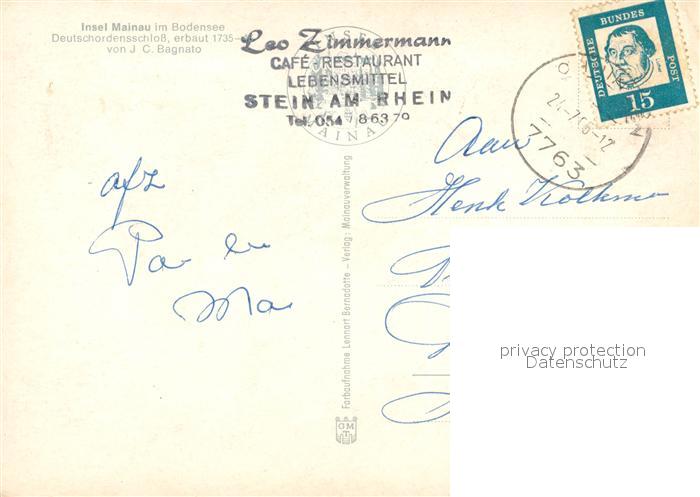 Insel Mainau im Bodensee
Deutschordensschloß, erbaut 1735–
von J C. Bagnato
Leo Zimmermann
CAFÉ RESTAURANT
LEBENSMITTEL
STEIN AM RHEIN
Tel. 054 / 8 63 79
INSEL
MAINAU
DEUTSCHE
BUNDES
POST
15
7763
Aan
Henk Kolkma
afz
Pa en
Ma
Farbaufnahme Lennart Bernadotte – Verlag: Mainauverwaltung
GM
privacy protection
Datenschutz